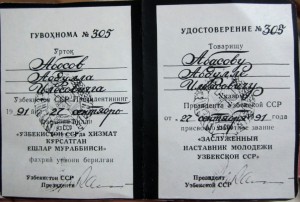 ГУВОҲНОМА № 305
Ўртоқ
Абосов
Абдулла
Илёсовичга
Ўзбекистон ССР Президентининг
1991 27 сентябрь
«ЎЗБЕКИСТОН ССРДА ХИЗМАТ
КЎРСАТГАН
ЁШЛАР МУРАББИЙСИ»
фахрий унвони берилган
Ўзбекистон ССР
Президенти
УДОСТОВЕРЕНИЕ № 305
Товарищу
Абасову
Абдулле
Илясовичу
Указом
Президента Узбекской ССР
от 27 сентября 1991 года
присвоено почетное звание
«ЗАСЛУЖЕННЫЙ
НАСТАВНИК МОЛОДЕЖИ
УЗБЕКСКОЙ ССР»
Президент
Узбекской ССР